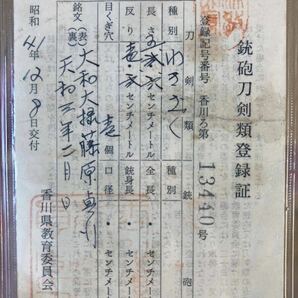 銃砲刀剣類登録証
登録記号番号 香川ろ第 13440 号
刀剣類 銃砲
種別 わきざし 種別
長さ センチメートル 全長 センチメートル
反り 壱・ センチメートル 銃身長 センチメートル
目くぎ穴 壱 個 口径 センチメートル
銘文 (表) 大和大掾藤原
(裏) 天和三年二月日
昭和 41年 12月 8日交付
香川県教育委員会